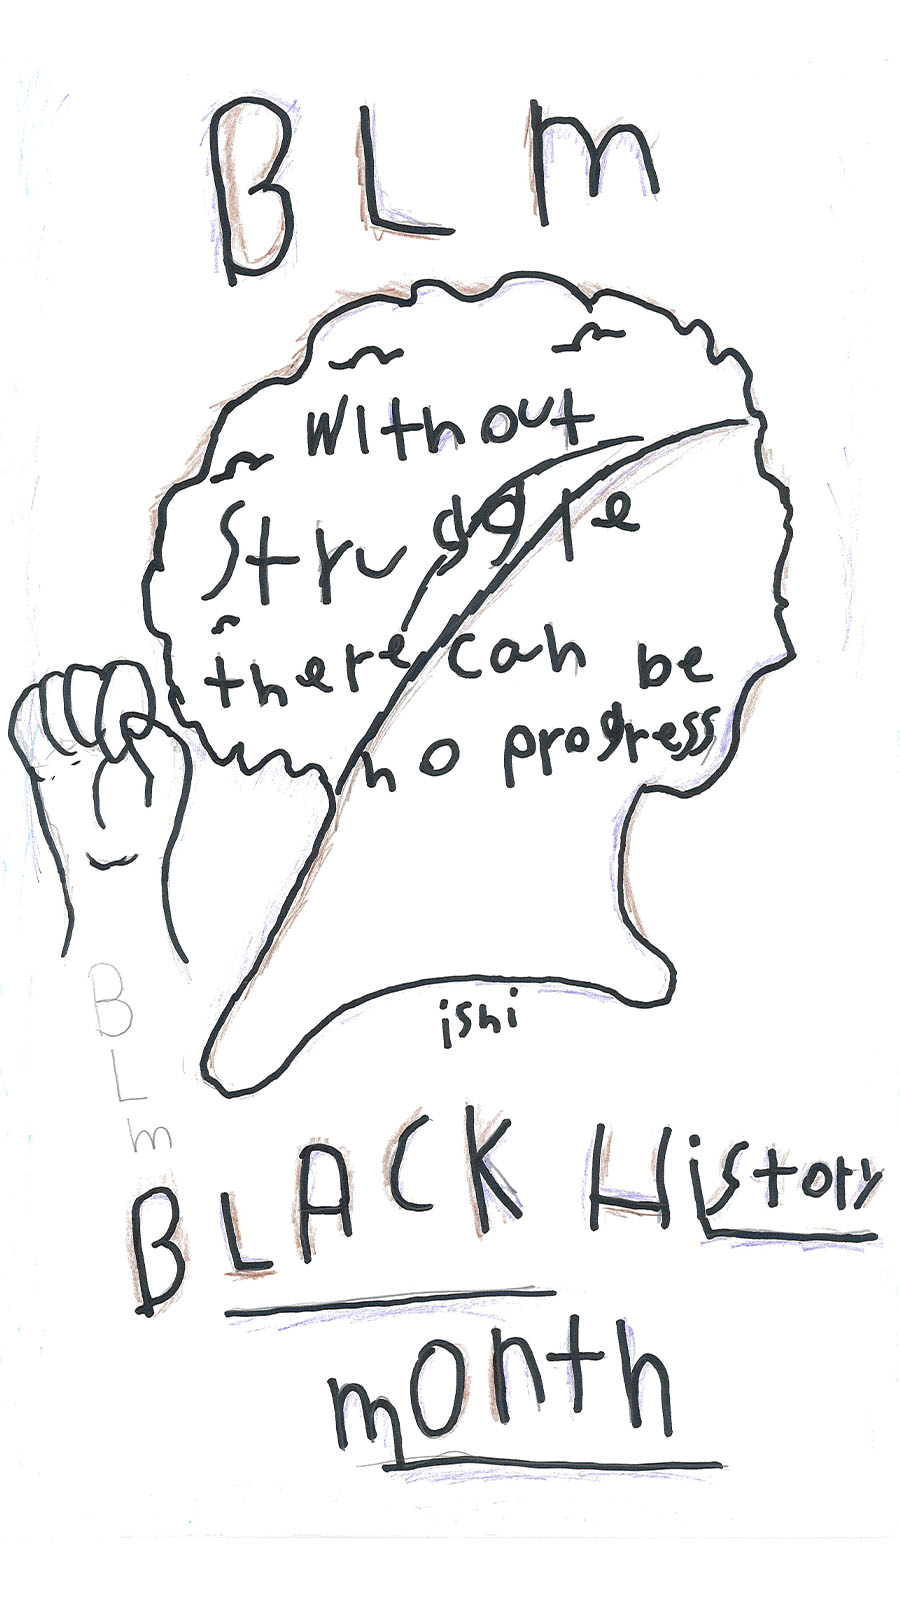 BLm
Without
Struggle
there can be
no progress
ishi
B
L
m
BLACK History
month